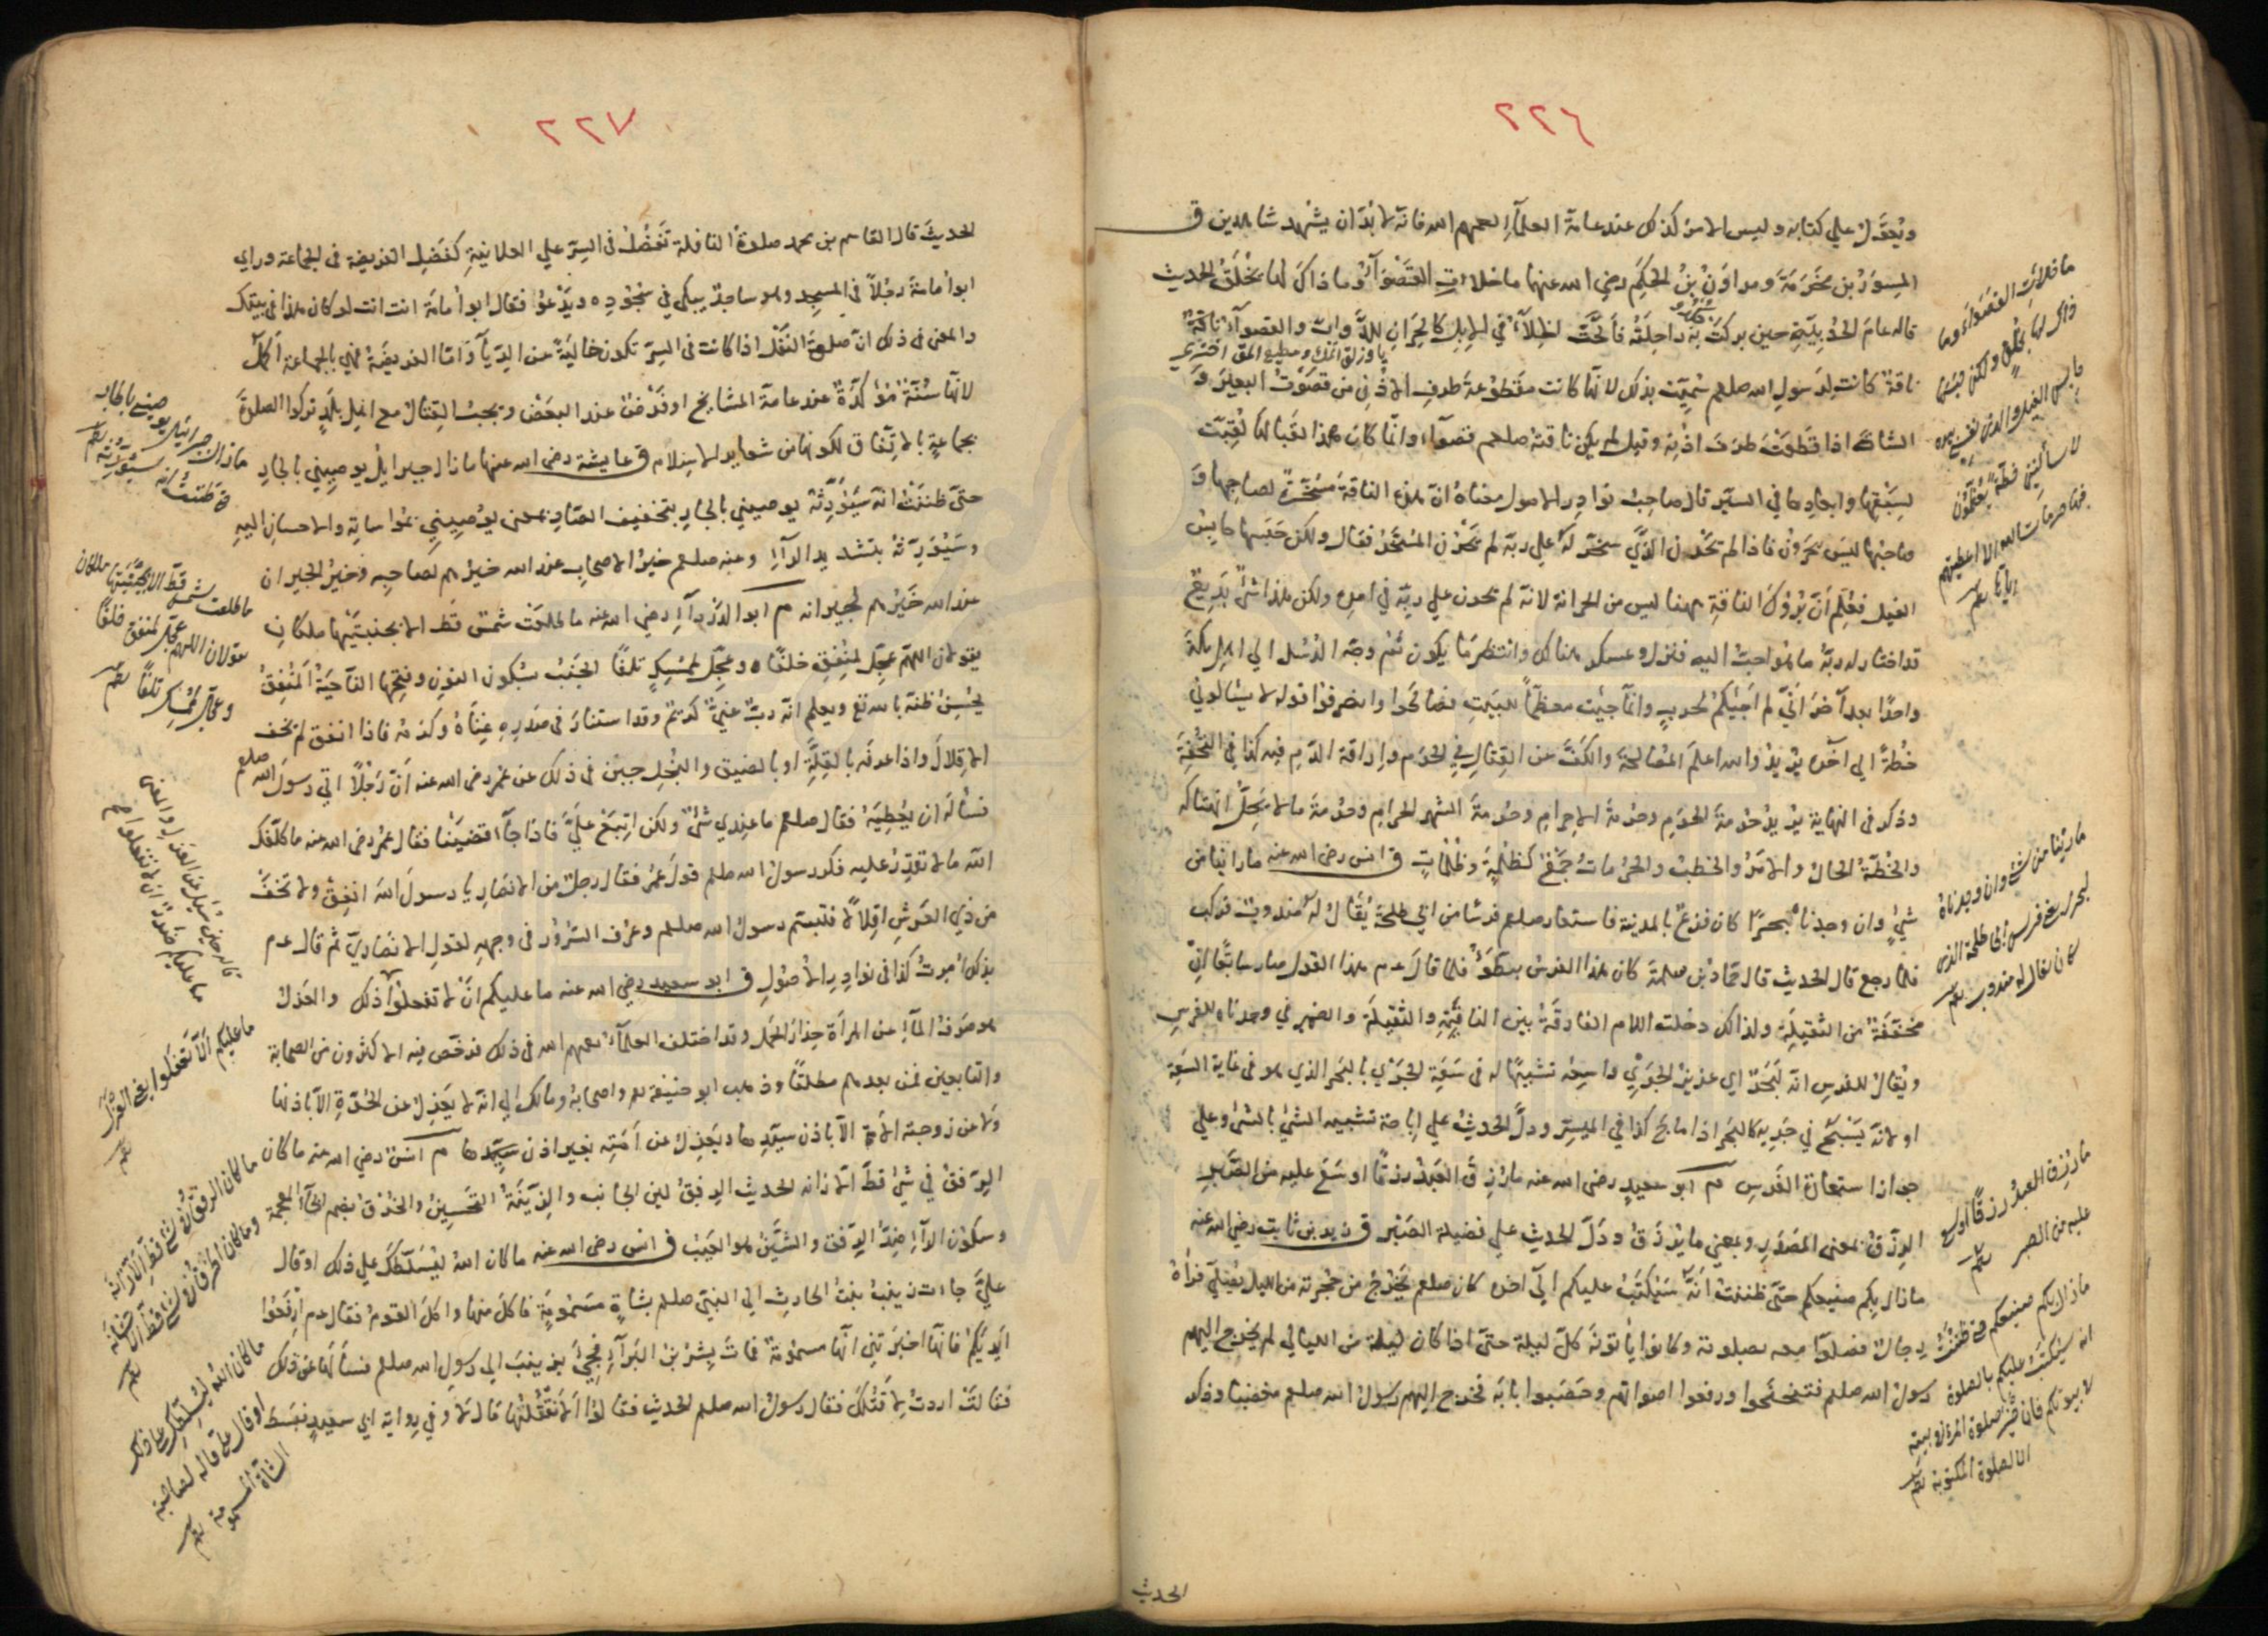 ٢٢٦
ويعول علي كتابه وليس الامر كذلك عند عامة العلمآء رحمهم الله فانه لا بد ان يشهد شاهدين ق
المسور بن مخرمة ومروان بن الحكم رضي الله عنهما ما خلات القصوآء وما ذاك لها بخلق الحديث
قاله عام الحديبية حين بركت به راحلته فألحت الخلآء في الابل كالحران للدواب والقصوآء ناقة
ناقة كانت لرسول الله صلعم سميت بذلك لانها كانت مقطوعة طرف الاذن من قصوت البعير و
الشاة اذا قطعت طرف اذنه وقيل لم يكن ناقته صلعم قصوآء وانما كان هذا لقبا لها لقبت
لسبقها وابعادها في السير قال صاحب نوادر الاصول معناه ان هذه الناقة مسخرة لصاحبها و
صاحبها ليس بحرون فاذا لم تحرن الذي سخر له علي ربه لم تحرن المسخر فقال ولكن حبسها حابس
الفيل فعلم ان بروك الناقة ههنا ليس من الحرانة لانه لم يحرن علي ربه في امره ولكن هذا شئ بديع
قد اختار له ربه ما هو احب اليه فنزل وعسكر هناك وانتظر ما يكون ثم وجه الرسل الي اهل مكة
واحدا بعد آخر اني لم اجئكم لحرب وانما جئت معظما للبيت فصالحوا وانصرفوا قوله لا يسألوني
خطة الي آخره يريد والله اعلم المصالحة والكف عن القتال في الحرم واراقة الدم فيه كذا في التحفة
وذكر في النهاية يريد حرمة الحرم وحرمة الاحرام وحرمة الشهر الحرام وحرمة ما لا يحل انتهاكه
والخطة الحال والامر والخطب والحرمات جمع كظلمة وظلمات ق انس رضي الله عنه ما راينا من
شئ وان وجدناه لبحرا كان فزع بالمدينة فاستعار صلعم فرسا من ابي طلحة يقال له مندوب فركب
فلما رجع قال الحديث قال حماد بن سلمة كان هذا الفرس يبطؤ فلما قال عدم هذا القول صار سابقا ان
مخففة من الثقيلة ولذلك دخلت اللام الفارقة بين النافية والثقيلة والضمير في وجدناه للفرس
ويقال للفرس انه لبحر اي غزير الجري واسعه تشبيها له في سعة الجري بالبحر الذي هو في غاية السعة
او لانه يسبح في جريه كالبحر اذا ماج كذا في الميسر ودل الحديث علي اباحة تشبيه الشئ بالشئ وعلي
جواز استعارة الفرس م ابو سعيد رضي الله عنه ما رزق العبد رزقا اوسع عليه من الصبر
الرزق بمعنى المصدر وبمعني ما يرزق ودل الحديث علي فضيلة الصبر ق زيد بن ثابت رضي الله عنه
ما زال بكم صنيعكم حتى ظننت انه سيكتب عليكم الي آخره كان صلعم يخرج من حجرته من الليل يصلي فرآه
رجال فصلوا معه بصلوته وكانوا يأتونه كل ليلة حتى اذا كان ليلة من الليالي لم يخرج اليهم
رسول الله صلعم فتنحنحوا ورفعوا اصواتهم وحصبوا بابه فخرج اليهم رسول الله صلعم مغضبا وذكر
الحديث
ما خلات القصواء وما
ذاك لها بخلق ولكن حبسها
حابس الفيل والذي نفسي بيده
لا يسألونني خطة يعظمون
فيها حرمات الله الا اعطيتهم
اياها
ما رينا من شئ وان وجدناه
لبحرا فرس ابي طلحة الذي
كان يقال له مندوب
ما رزق العبد رزقا اوسع
عليه من الصبر
ما زال بكم صنيعكم حتى ظننت
انه سيكتب عليكم بالصلوة
بيوتكم فان خير صلوة المرء في بيته
الا الصلوة المكتوبة
٢٢٧
الحديث قال القاسم بن محمد صلوة النافلة تفضل في السر علي العلانية كفضل الفريضة في الجماعة وراي
ابو امامة رجلا في المسجد وهو ساجد يبكي في سجوده ويدعو فقال ابو امامة انت انت لو كان هذا في بيتك
والمعنى في ذلك ان صلوة النفل اذا كانت في السر تكون خالية من الريآء واما الفريضة فهي بالجماعة اكمل
لانها سنة مؤكدة عند عامة المشايخ او فرض عند البعض ويجب القتال مع اهل بلد تركوا الصلوة
بجماعة بالاتفاق لكونها من شعاير الاسلام ق عايشة رضي الله عنها ما زال جبرايل يوصيني بالجار
حتى ظننت انه سيورثه يوصيني بالجار بتخفيف الصاد بمعنى يوصيني بمواساته والاحسان اليه
وسيورثه بتشديد الرآء وعنه صلعم خير الاصحاب عند الله خيرهم لصاحبه وخير الجيران
عند الله خيرهم لجيرانه م ابو الدردآء رضي الله عنه ما طلعت شمس قط الا بجنبتيها ملكان
يقولان اللهم عجل لمنفق خلفا وعجل لممسك تلفا الجنب بسكون النون وفتحها الناحية المنفق
يحسن ظنه بالله تع ويعلم انه رب غني كريم وقد استنار في صدره غناه وكرمه فاذا انفق لم يخف
الاقلال واذا عرفه بالقلة او بالضيق والبخل جبن في ذلك عن عمر رضي الله عنه ان رجلا اتي رسول الله صلعم
فسأله ان يعطيه فقال صلعم ما عندي شئ ولكن ابتع علي فاذا جآء قضيته فقال عمر رضي الله عنه ما كلفك
الله ما لا تقدر عليه فكره رسول الله صلعم قول عمر فقال رجل من الانصار يا رسول الله انفق ولا تخف
من ذي العرش اقلالا فتبسم رسول الله صلعم وعرف السرور في وجهه لقول الانصاري ثم قال عدم
بذلك امرت كذا في نوادر الاصول ق ابو سعيد رضي الله عنه ما عليكم ان لا تفعلوا ذلك والعزل
هو صرف المآء عن المرأة حذار الحمل وقد اختلف العلمآء رحمهم الله في ذلك فرخص فيه الاكثرون من الصحابة
والتابعين فمن بعدهم مطلقا وذهب ابو حنيفة رحمه واصحابه ومالك الي انه لا يعزل عن الحرة الا باذنها
ولا عن زوجته الامة الا باذن سيدها ويعزل عن امته بغير اذن سيدها م انس رضي الله عنه ما كان
الرفق في شئ قط الا زانه الحديث الرفق لين الجانب والزينة التحسين والخرق بضم الخآء المعجمة
وسكون الرآء ضد الرفق والشين هو العيب ق انس رضي الله عنه ما كان الله ليسلطك علي ذلك او قال
علي جاءت زينب بنت الحارث الي النبي صلعم بشاة مسمومة فاكل منها واكل القوم فقال عدم ارفعوا
ايديكم فانها اخبرتني انها مسمومة فمات بشر بن البرآء فجئ بزينب الي رسول الله صلعم فسألها عن ذلك
فقالت اردت لاقتلك فقال رسول الله صلعم الحديث فقالوا الا نقتلها قال لا وفي رواية ابي سعيد فبسط
ما زال جبرائيل يوصيني بالجار
حتى ظننت انه سيورثه
ما طلعت شمس قط الا بجنبتيها ملكان
يقولان اللهم عجل لمنفق خلفا
وعجل لممسك تلفا
ما عليكم الا تفعلوا يعني العزل
ما كان الرفق في شئ قط الا زانه
وما كان الخرق في شئ قط الا شانه
ما كان الله ليسلطك على ذلك
او قال علي قاله لصاحبة
الشاة المسمومة